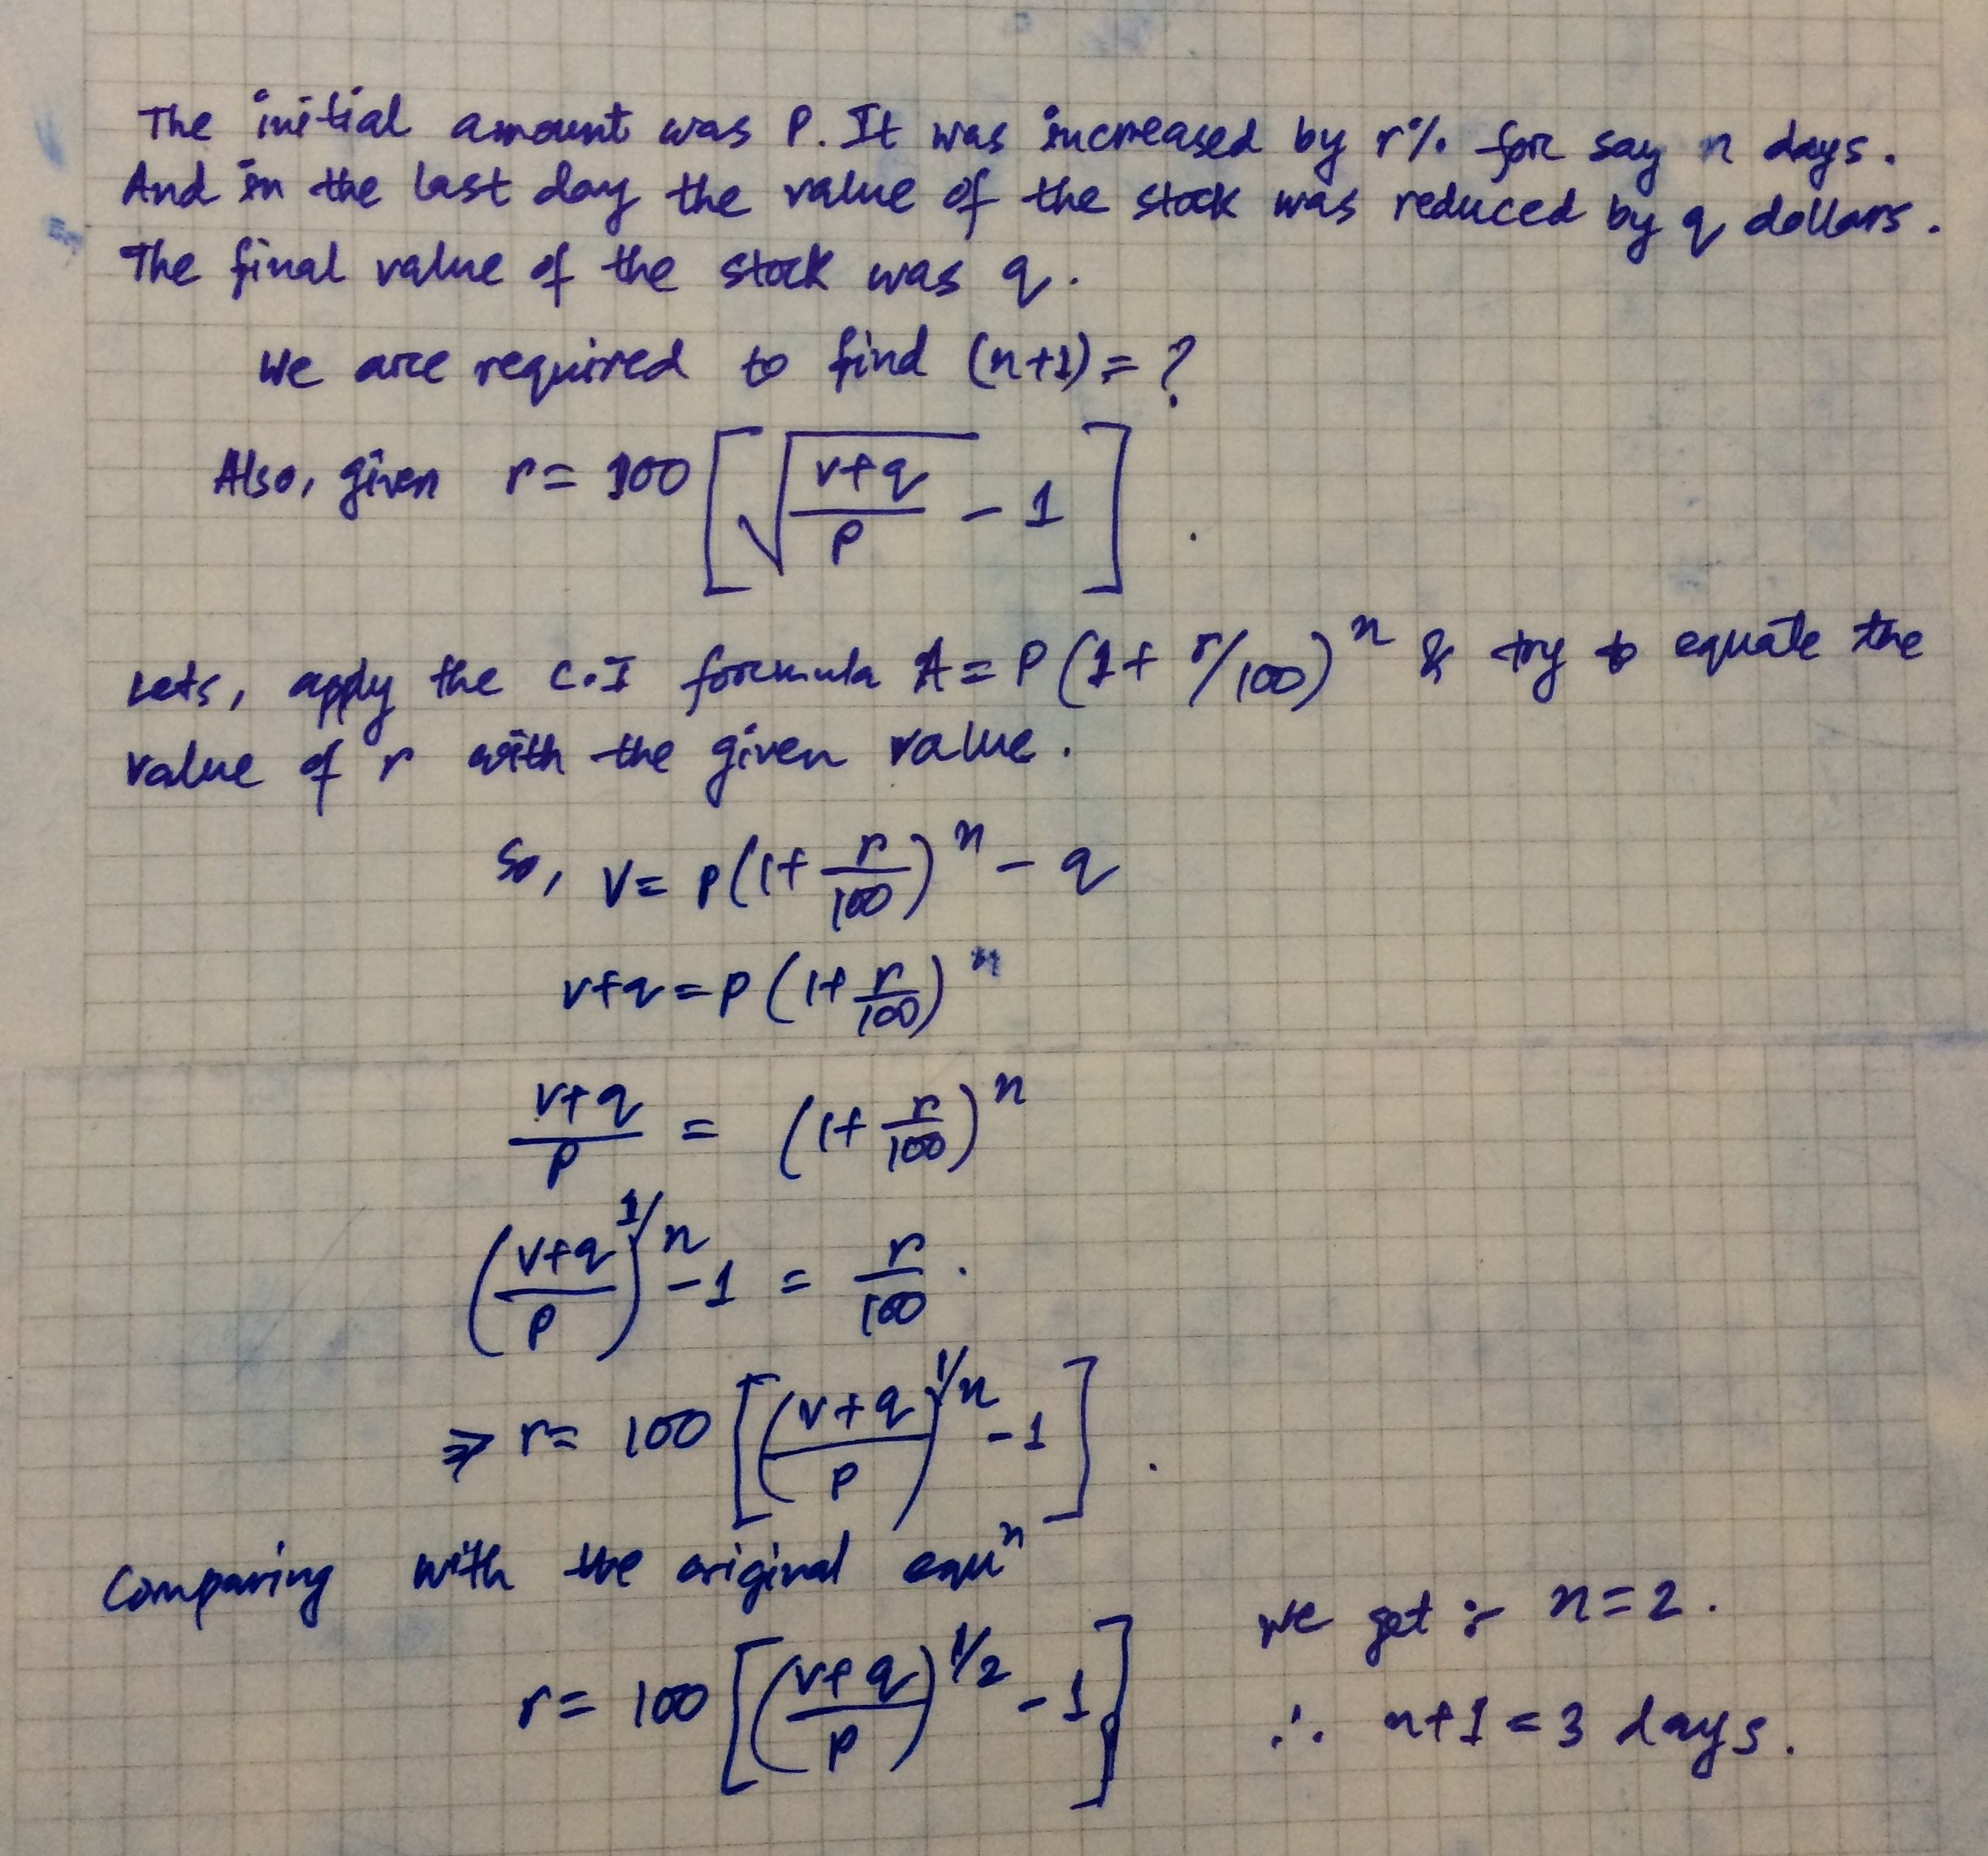 The initial amount was P. It was increased by r% for say n days.
And in the last day the value of the stock was reduced by q dollars.
The final value of the stock was q.
We are required to find (n+1) = ?
Also, given r = 100 [√((v+q)/p) - 1].
Lets, apply the C.I formula A = P(1 + r/100)^n & try to equate the
value of r with the given value.
So, v = p(1 + r/100)^n - q
v+q = p(1 + r/100)^n
(v+q)/p = (1 + r/100)^n
((v+q)/p)^1/n - 1 = r/100.
⇒ r = 100 [((v+q)/p)^1/n - 1].
Comparing with the original equ^n
r = 100 [((v+q)/p)^1/2 - 1]
We get :- n = 2.
∴ n+1 = 3 days.